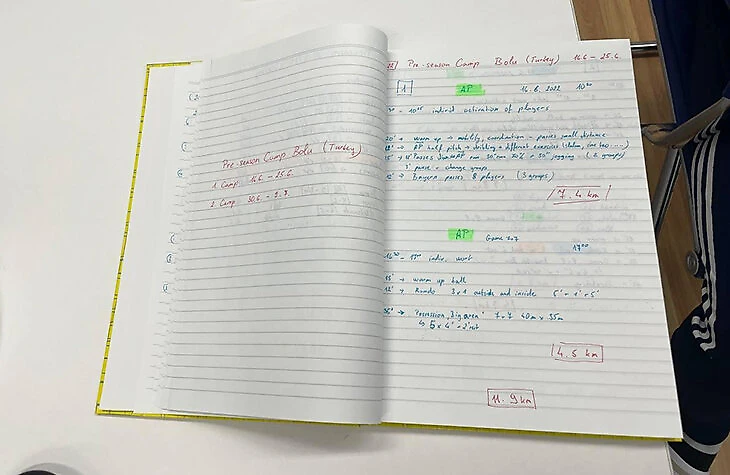 Pre-season Camp Bolu (Turkey)
1. Camp 16.6 - 25.6.
2. Camp 30.6. - 9.7.
Pre-season Camp Bolu (Turkey) 16.6 - 25.6.
1 AP 16.6.2022 10³⁰
indirect activation of players
20' → warm up → mobility, coordination - passes small distance
AP half pitch → dribling + different exercises
15' Passes run 30" run 70% - 30" jogging (2 groups)
1' pause - change groups
12' → Bayern passes 8 players (3 groups)
7.4 km
AP Game 7v7 17⁰⁰
16³⁰ - 17⁰⁰ indiv. work
15' → warm up ball
12' → Rondo 3x1 outside and inside 5' - 1' - 5'
→ Possession "Big area" 7v7 40m x 35m
↳ 5 x 4' - 2' rest
4.5 km
11.9 km